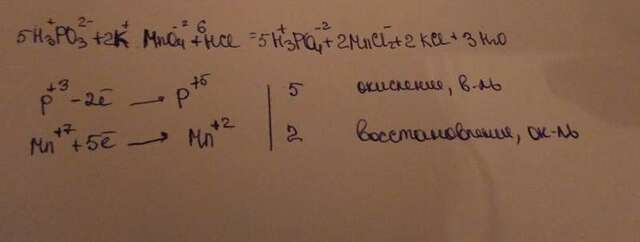 5H₃⁺PO₃²⁻ + 2K⁺MnO₄⁻² + 6HCl = 5H₃⁺PO₄⁻² + 2MnCl₂ + 2KCl + 3H₂O
P⁺³ - 2ē → P⁺⁵ | 5 окисление, в-ль
Mn⁺⁷ + 5ē → Mn⁺² | 2 восстановление, ок-ль